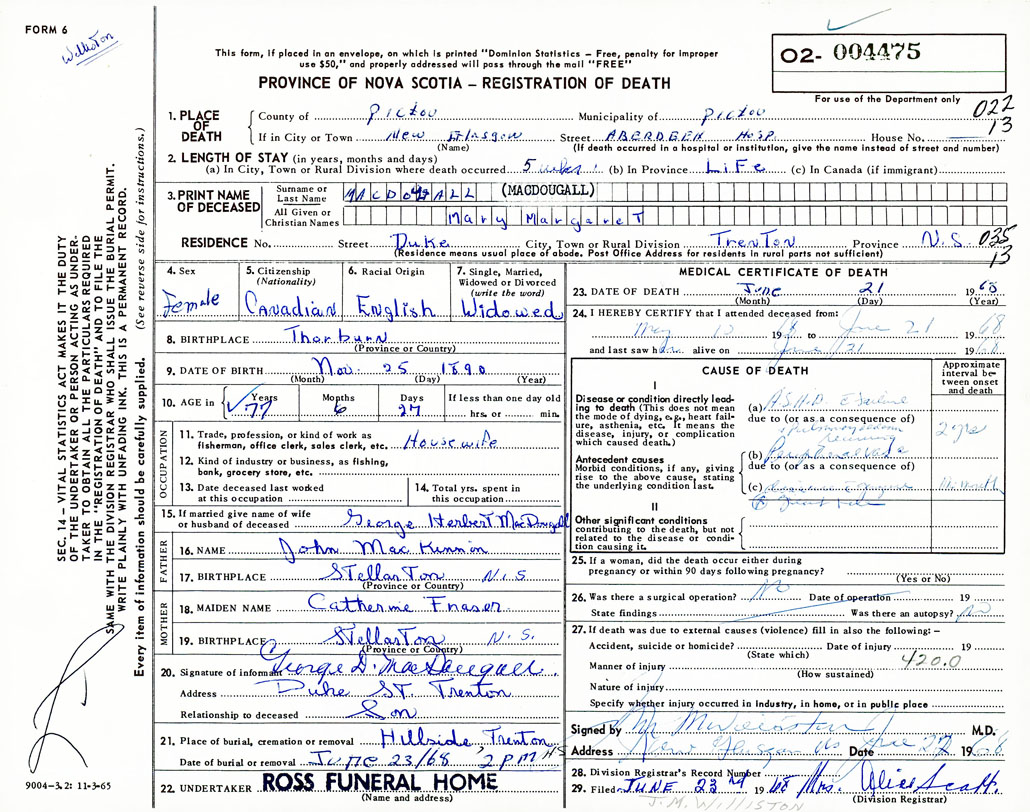 FORM 6
Williston
This form, if placed in an envelope, on which is printed "Dominion Statistics – Free, penalty for improper
use $50," and properly addressed will pass through the mail "FREE"
PROVINCE OF NOVA SCOTIA – REGISTRATION OF DEATH
02- 004475
For use of the Department only
022
13
1. PLACE OF DEATH
County of Pictou Municipality of Pictou
If in City or Town New Glasgow Street ABERDEEN Hosp. House No.
(Name) (If death occurred in a hospital or institution, give the name instead of street and number)
2. LENGTH OF STAY (in years, months and days)
(a) In City, Town or Rural Division where death occurred 5 wks (b) In Province LiFe (c) In Canada (if immigrant)
3. PRINT NAME OF DECEASED
Surname or Last Name MACDOUGALL (MACDOUGALL)
All Given or Christian Names Mary MargareT
RESIDENCE No. Street Duke City, Town or Rural Division TrenTon Province N.S. 035
13
(Residence means usual place of abode. Post Office Address for residents in rural parts not sufficient)
4. Sex
Female
5. Citizenship
(Nationality)
Canadian
6. Racial Origin
English
7. Single, Married,
Widowed or Divorced
(write the word)
Widowed
8. BIRTHPLACE Thorburn
(Province or Country)
9. DATE OF BIRTH Nov. 25 1890
(Month) (Day) (Year)
10. AGE in Years Months Days If less than one day old
77 6 27 hrs. or min.
OCCUPATION
11. Trade, profession, or kind of work as
fisherman, office clerk, sales clerk, etc. Housewife
12. Kind of industry or business, as fishing,
bank, grocery store, etc.
13. Date deceased last worked
at this occupation
14. Total yrs. spent in
this occupation
15. If married give name of wife
or husband of deceased George Herbert MacDougall
FATHER
16. NAME John MacKinnon
17. BIRTHPLACE STellarTon N.S.
(Province or Country)
MOTHER
18. MAIDEN NAME Catherine Fraser
19. BIRTHPLACE STellarTon N.S.
(Province or Country)
20. Signature of informant George D. MacDougall.
Address Duke ST. Trenton
Relationship to deceased Son
21. Place of burial, cremation or removal Hillside, Trenton
Date of burial or removal June 23/68 2 PM
22. UNDERTAKER ROSS FUNERAL HOME
(Name and address)
MEDICAL CERTIFICATE OF DEATH
23. DATE OF DEATH June 21 1968
(Month) (Day) (Year)
24. I HEREBY CERTIFY that I attended deceased from:
May 1968 to June 21 1968
and last saw her alive on June 21 1968
CAUSE OF DEATH
Approximate
interval be-
tween onset
and death
I
Disease or condition directly lead-
ing to death (This does not mean
the mode of dying, e.g., heart fail-
ure, asthenia, etc. It means the
disease, injury, or complication
which caused death.)
(a) A.S.H.D.
due to (or as a consequence of)
2 yrs
Antecedent causes
Morbid conditions, if any, giving
rise to the above cause, stating
the underlying condition last.
(b) Peripheral
due to (or as a consequence of)
(c)
II
Other significant conditions
contributing to the death, but not
related to the disease or condi-
tion causing it.
25. If a woman, did the death occur either during
pregnancy or within 90 days following pregnancy?
(Yes or No)
26. Was there a surgical operation? No Date of operation 19
State findings Was there an autopsy? No
27. If death was due to external causes (violence) fill in also the following: –
Accident, suicide or homicide? Date of injury 19
(State which)
420.0
Manner of injury
(How sustained)
Nature of injury
Specify whether injury occurred in industry, in home, or in public place
Signed by M.D.
Address New Glasgow NS Date June 22 1968
28. Division Registrar's Record Number
29. Filed JUNE 23rd 1968 Mrs. Alice Scott
(Division Registrar)
J.M. WILLISTON
SEC. 14 – VITAL STATISTICS ACT MAKES IT THE DUTY
OF THE UNDERTAKER OR PERSON ACTING AS UNDER-
TAKER TO OBTAIN ALL THE PARTICULARS REQUIRED
IN THE "REGISTRATION OF DEATH" AND TO FILE THE
SAME WITH THE DIVISION REGISTRAR WHO SHALL ISSUE THE BURIAL PERMIT.
WRITE PLAINLY WITH UNFADING INK. THIS IS A PERMANENT RECORD.
Every item of information should be carefully supplied. (See reverse side for instructions.)
9004-3.2: 11-3-65